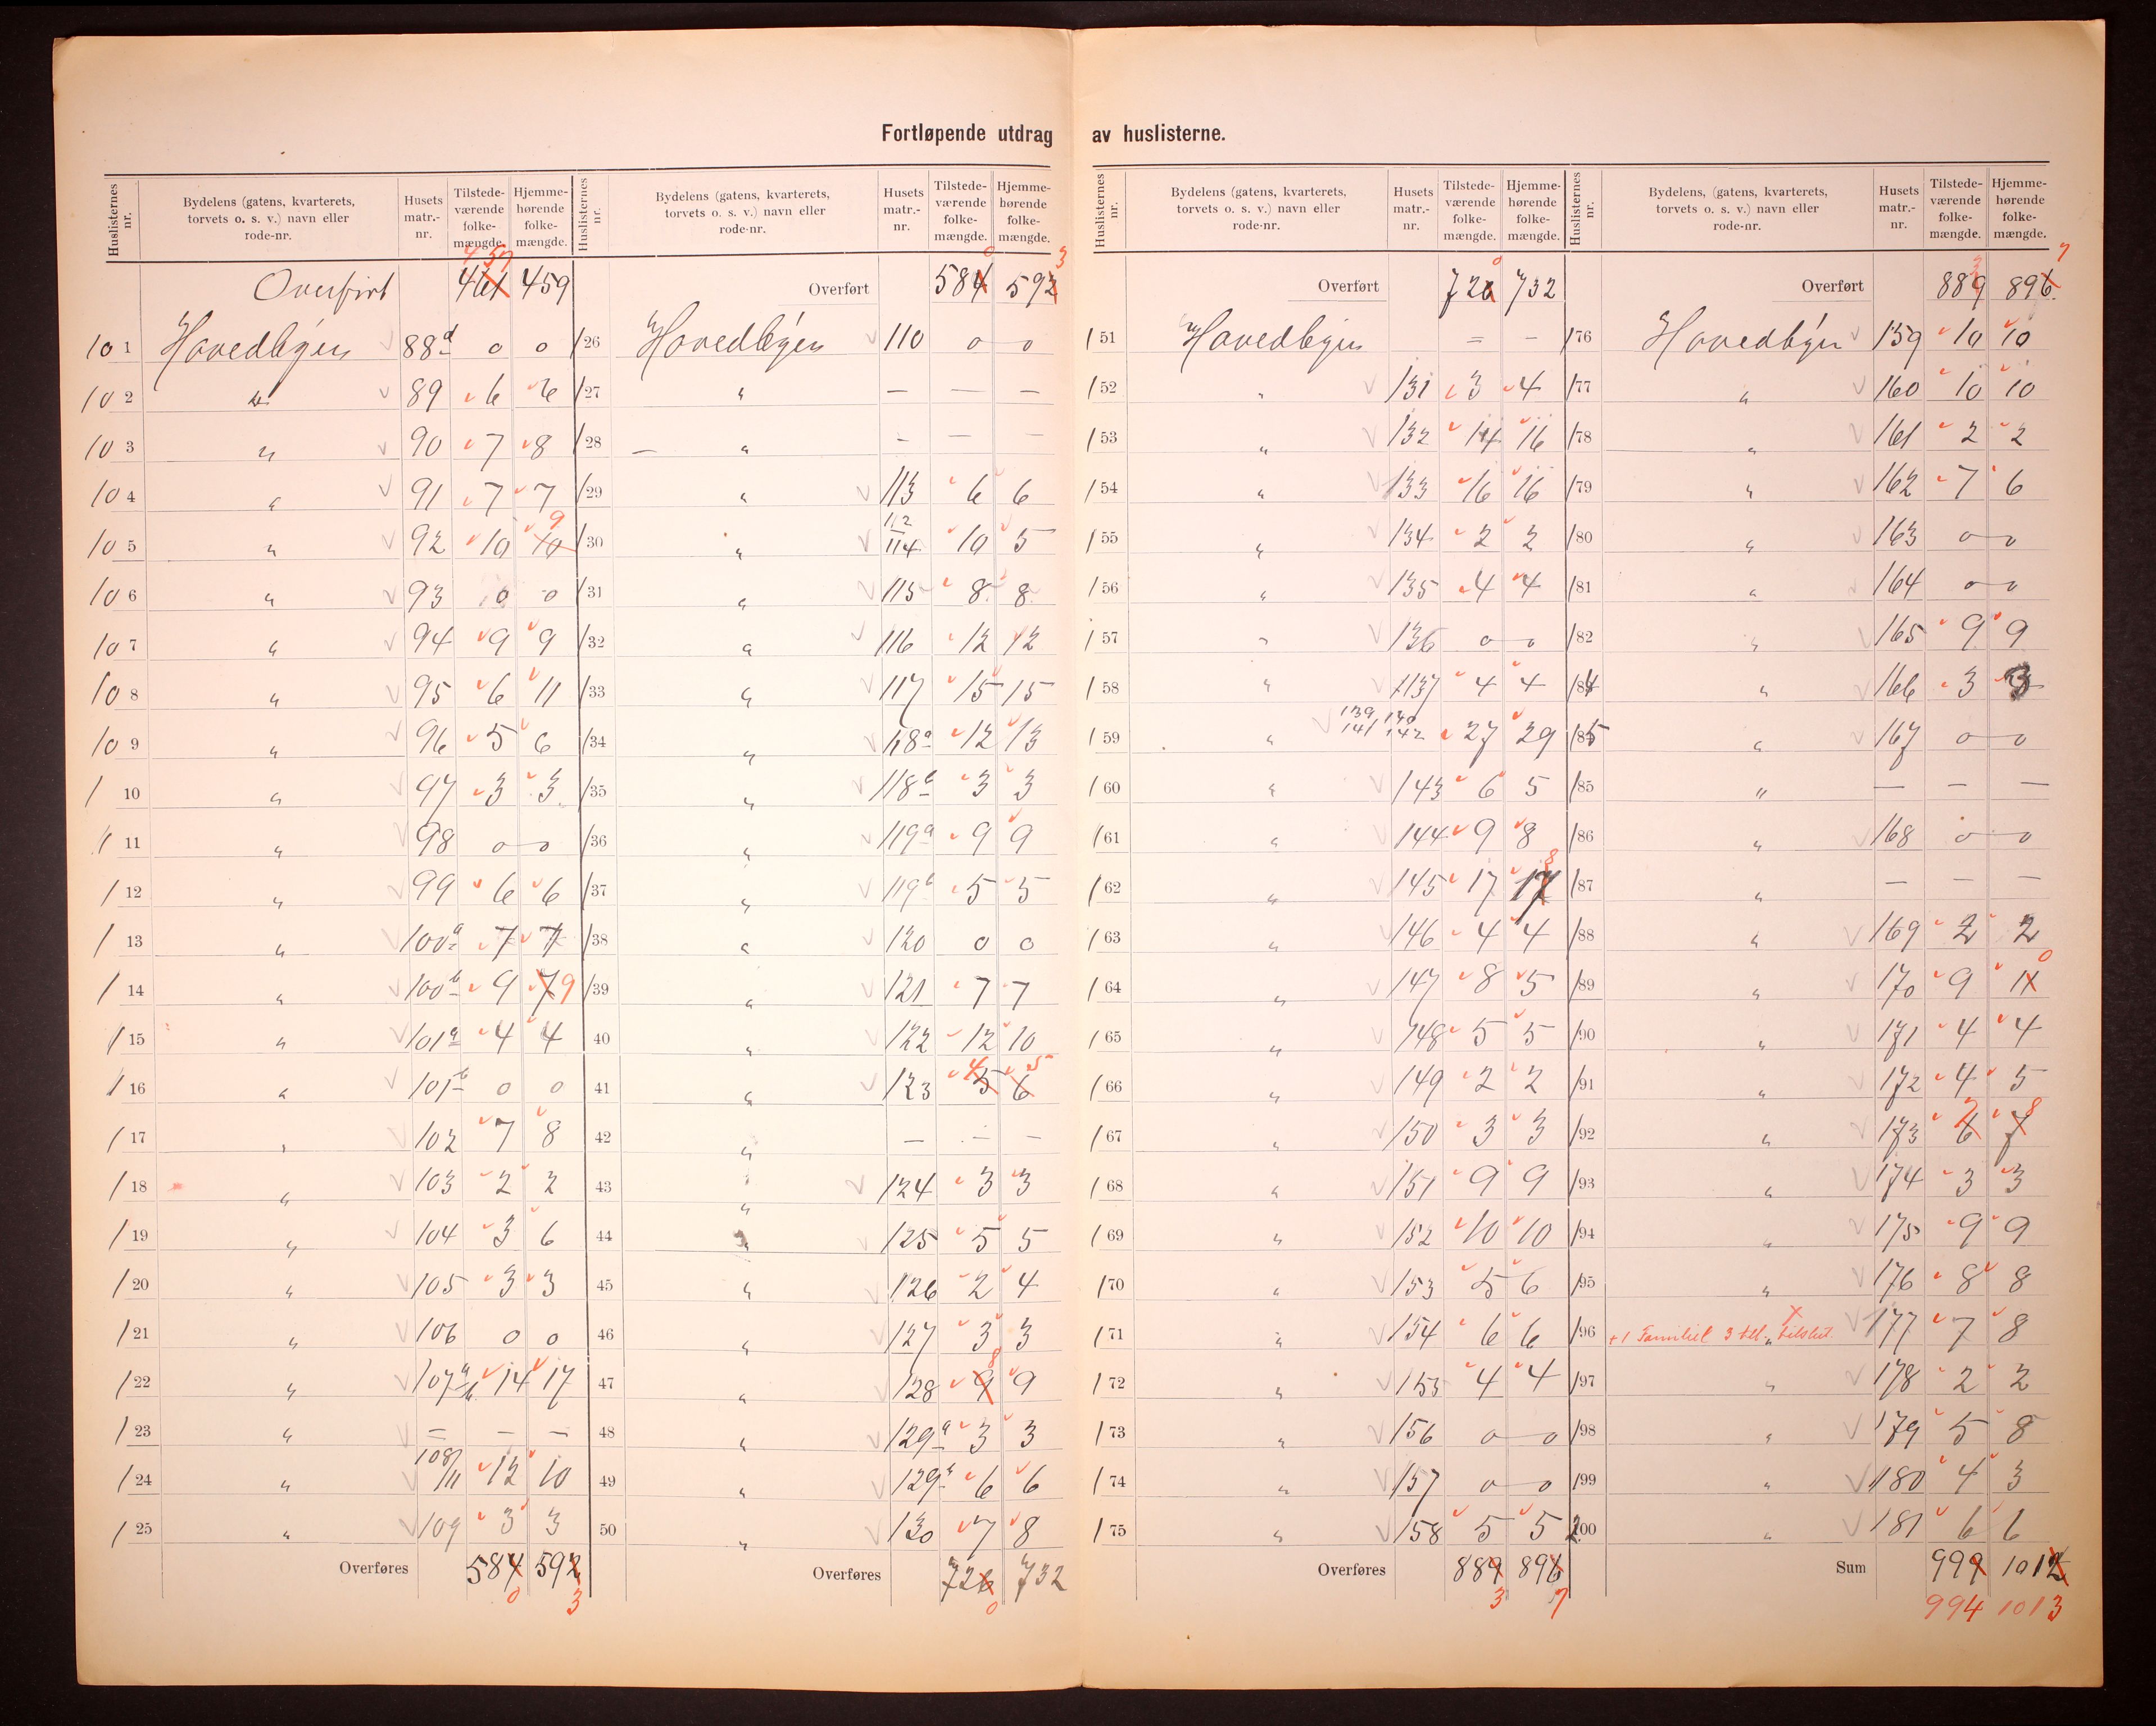 Fortløpende utdrag av huslisterne.
Huslisternes nr. | Bydelens (gatens, kvarterets, torvets o. s. v.) navn eller rode-nr. | Husets matr.-nr. | Tilstede-værende folke-mængde. | Hjemme-hørende folke-mængde.
Overført 461 457 459
101 Hovedbyen 88d 0 0
102 " 89 6 6
103 " 90 7 8
104 " 91 7 7
105 " 92 10 10 9
106 " 93 0 0
107 " 94 9 9
108 " 95 6 11
109 " 96 5 6
110 " 97 3 3
111 " 98 0 0
112 " 99 6 6
113 " 100a 7 7
114 " 100b 9 7 9
115 " 101a 4 4
116 " 101b 0 0
117 " 102 7 8
118 " 103 2 2
119 " 104 3 6
120 " 105 3 3
121 " 106 0 0
122 " 107a/b 14 17
123 " = — —
124 " 108/11 12 10
125 " 109 3 3
Overføres 584 0 592 3
Huslisternes nr. | Bydelens (gatens, kvarterets, torvets o. s. v.) navn eller rode-nr. | Husets matr.-nr. | Tilstede-værende folke-mængde. | Hjemme-hørende folke-mængde.
Overført 584 0 592 3
126 Hovedbyen 110 0 0
127 " — — —
128 " — — —
129 " 113 6 6
130 " 112 114 10 5
131 " 115 8 8
132 " 116 12 12
133 " 117 15 15
134 " 118a 12 13
135 " 118b 3 3
136 " 119a 9 9
137 " 119b 5 5
138 " 120 0 0
139 " 121 7 7
40 " 122 12 10
41 " 123 5 4 6 5
42 " — — —
43 " 124 3 3
44 " 125 5 5
45 " 126 2 4
46 " 127 3 3
47 " 128 9 8 9
48 " 129a 3 3
49 " 129b 6 6
50 " 130 7 8
Overføres 726 0 732
Huslisternes nr. | Bydelens (gatens, kvarterets, torvets o. s. v.) navn eller rode-nr. | Husets matr.-nr. | Tilstede-værende folke-mængde. | Hjemme-hørende folke-mængde.
Overført 726 0 732
151 Hovedbyen = —
152 " 131 3 4
153 " 132 14 16
154 " 133 16 16
155 " 134 2 2
156 " 135 4 4
157 " 136 0 0
158 " 137 4 4
159 " 139 140 141 142 27 29
160 " 143 6 5
161 " 144 9 8
162 " 145 17 17 8
163 " 146 4 4
164 " 147 8 5
165 " 148 5 5
166 " 149 2 2
167 " 150 3 3
168 " 151 9 9
169 " 152 10 10
170 " 153 5 6
171 " 154 6 6
172 " 155 4 4
173 " 156 0 0
174 " 157 0 0
175 " 158 5 5
Overføres 889 3 896 7
Huslisternes nr. | Bydelens, (gatens, kvarterets, torvets o. s. v.) navn eller rode-nr. | Husets matr.-nr. | Tilstede-værende folke-mængde. | Hjemme-hørende folke-mængde.
Overført 889 3 896 7
176 Hovedbyen 159 10 10
177 " 160 10 10
178 " 161 2 2
179 " 162 7 6
180 " 163 0 0
181 " 164 0 0
182 " 165 9 9
184 " 166 3 3
185 " 167 0 0
185 " — — —
186 " 168 0 0
187 " — — —
188 " 169 2 2
189 " 170 9 11 0
190 " 171 4 4
191 " 172 4 5
192 " 173 6 7 7 8
193 " 174 3 3
194 " 175 9 9
195 " 176 8 8
196 +1 Familiel 3 " 177 7 8
197 " 178 2 2
198 " 179 5 8
199 " 180 4 3
200 " 181 6 6
Sum 999 1012
994 1013